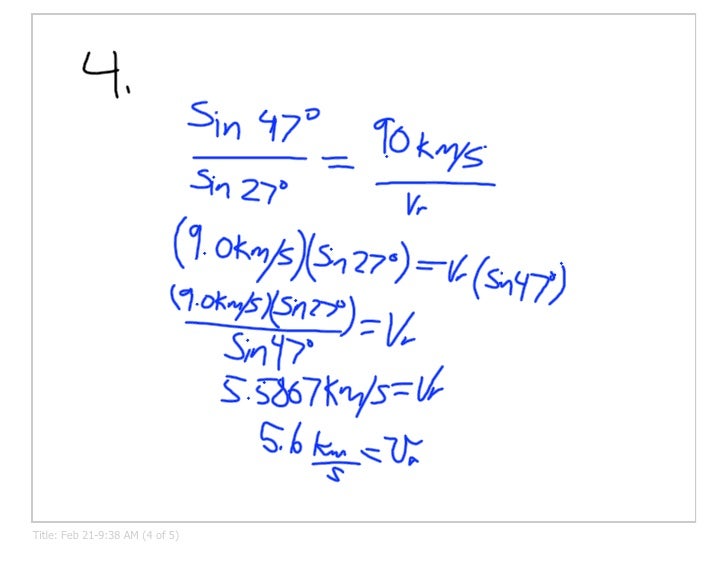 4.
Sin 47° / Sin 27° = 9.0 km/s / Vr
(9.0km/s)(Sin 27°) = Vr (Sin47°)
(9.0km/s)(Sin27°) / Sin47° = Vr
5.5867km/s = Vr
5.6 km/s = Vr
Title: Feb 21-9:38 AM (4 of 5)